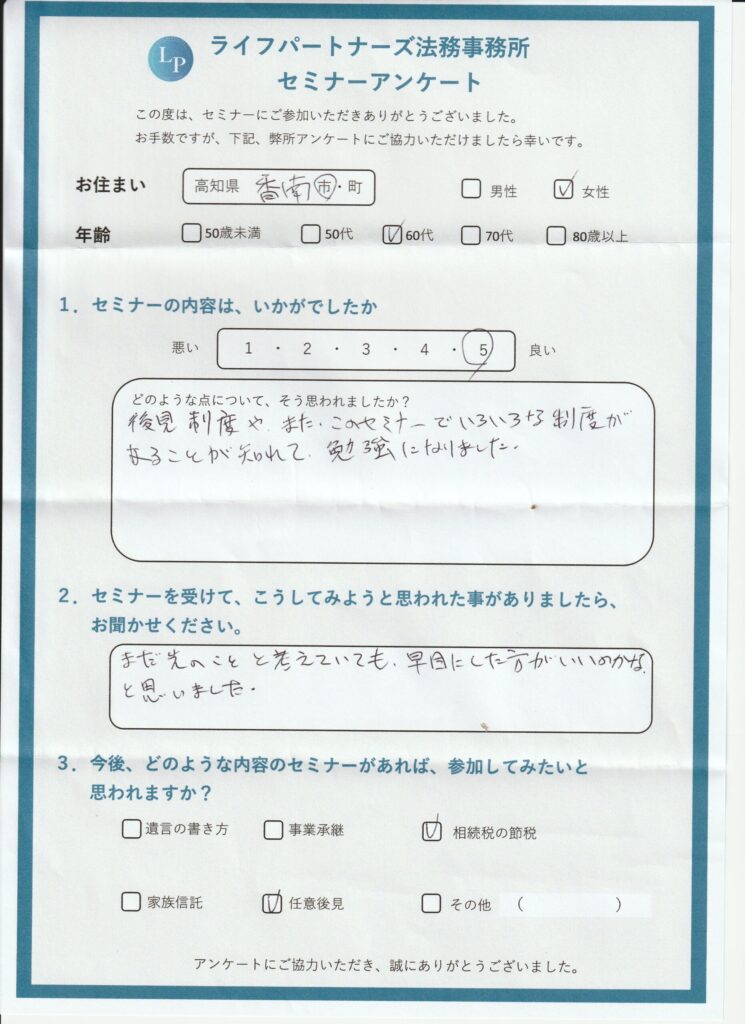 LP
ライフパートナーズ法務事務所
セミナーアンケート
この度は、セミナーにご参加いただきありがとうございました。
お手数ですが、下記、弊所アンケートにご協力いただけましたら幸いです。
お住まい 高知県 香南 市・町 男性 女性
年齢 50歳未満 50代 60代 70代 80歳以上
1．セミナーの内容は、いかがでしたか
悪い 1 ・ 2 ・ 3 ・ 4 ・ 5 良い
どのような点について、そう思われましたか？
後見制度や、また、このセミナーでいろいろな制度が
あることが知れて、勉強になりました。
2．セミナーを受けて、こうしてみようと思われた事がありましたら、
お聞かせください。
まだ先のことと考えていても、早目にした方がいいのかな、
と思いました。
3．今後、どのような内容のセミナーがあれば、参加してみたいと
思われますか？
遺言の書き方 事業承継 相続税の節税
家族信託 任意後見 その他 （ ）
アンケートにご協力いただき、誠にありがとうございました。